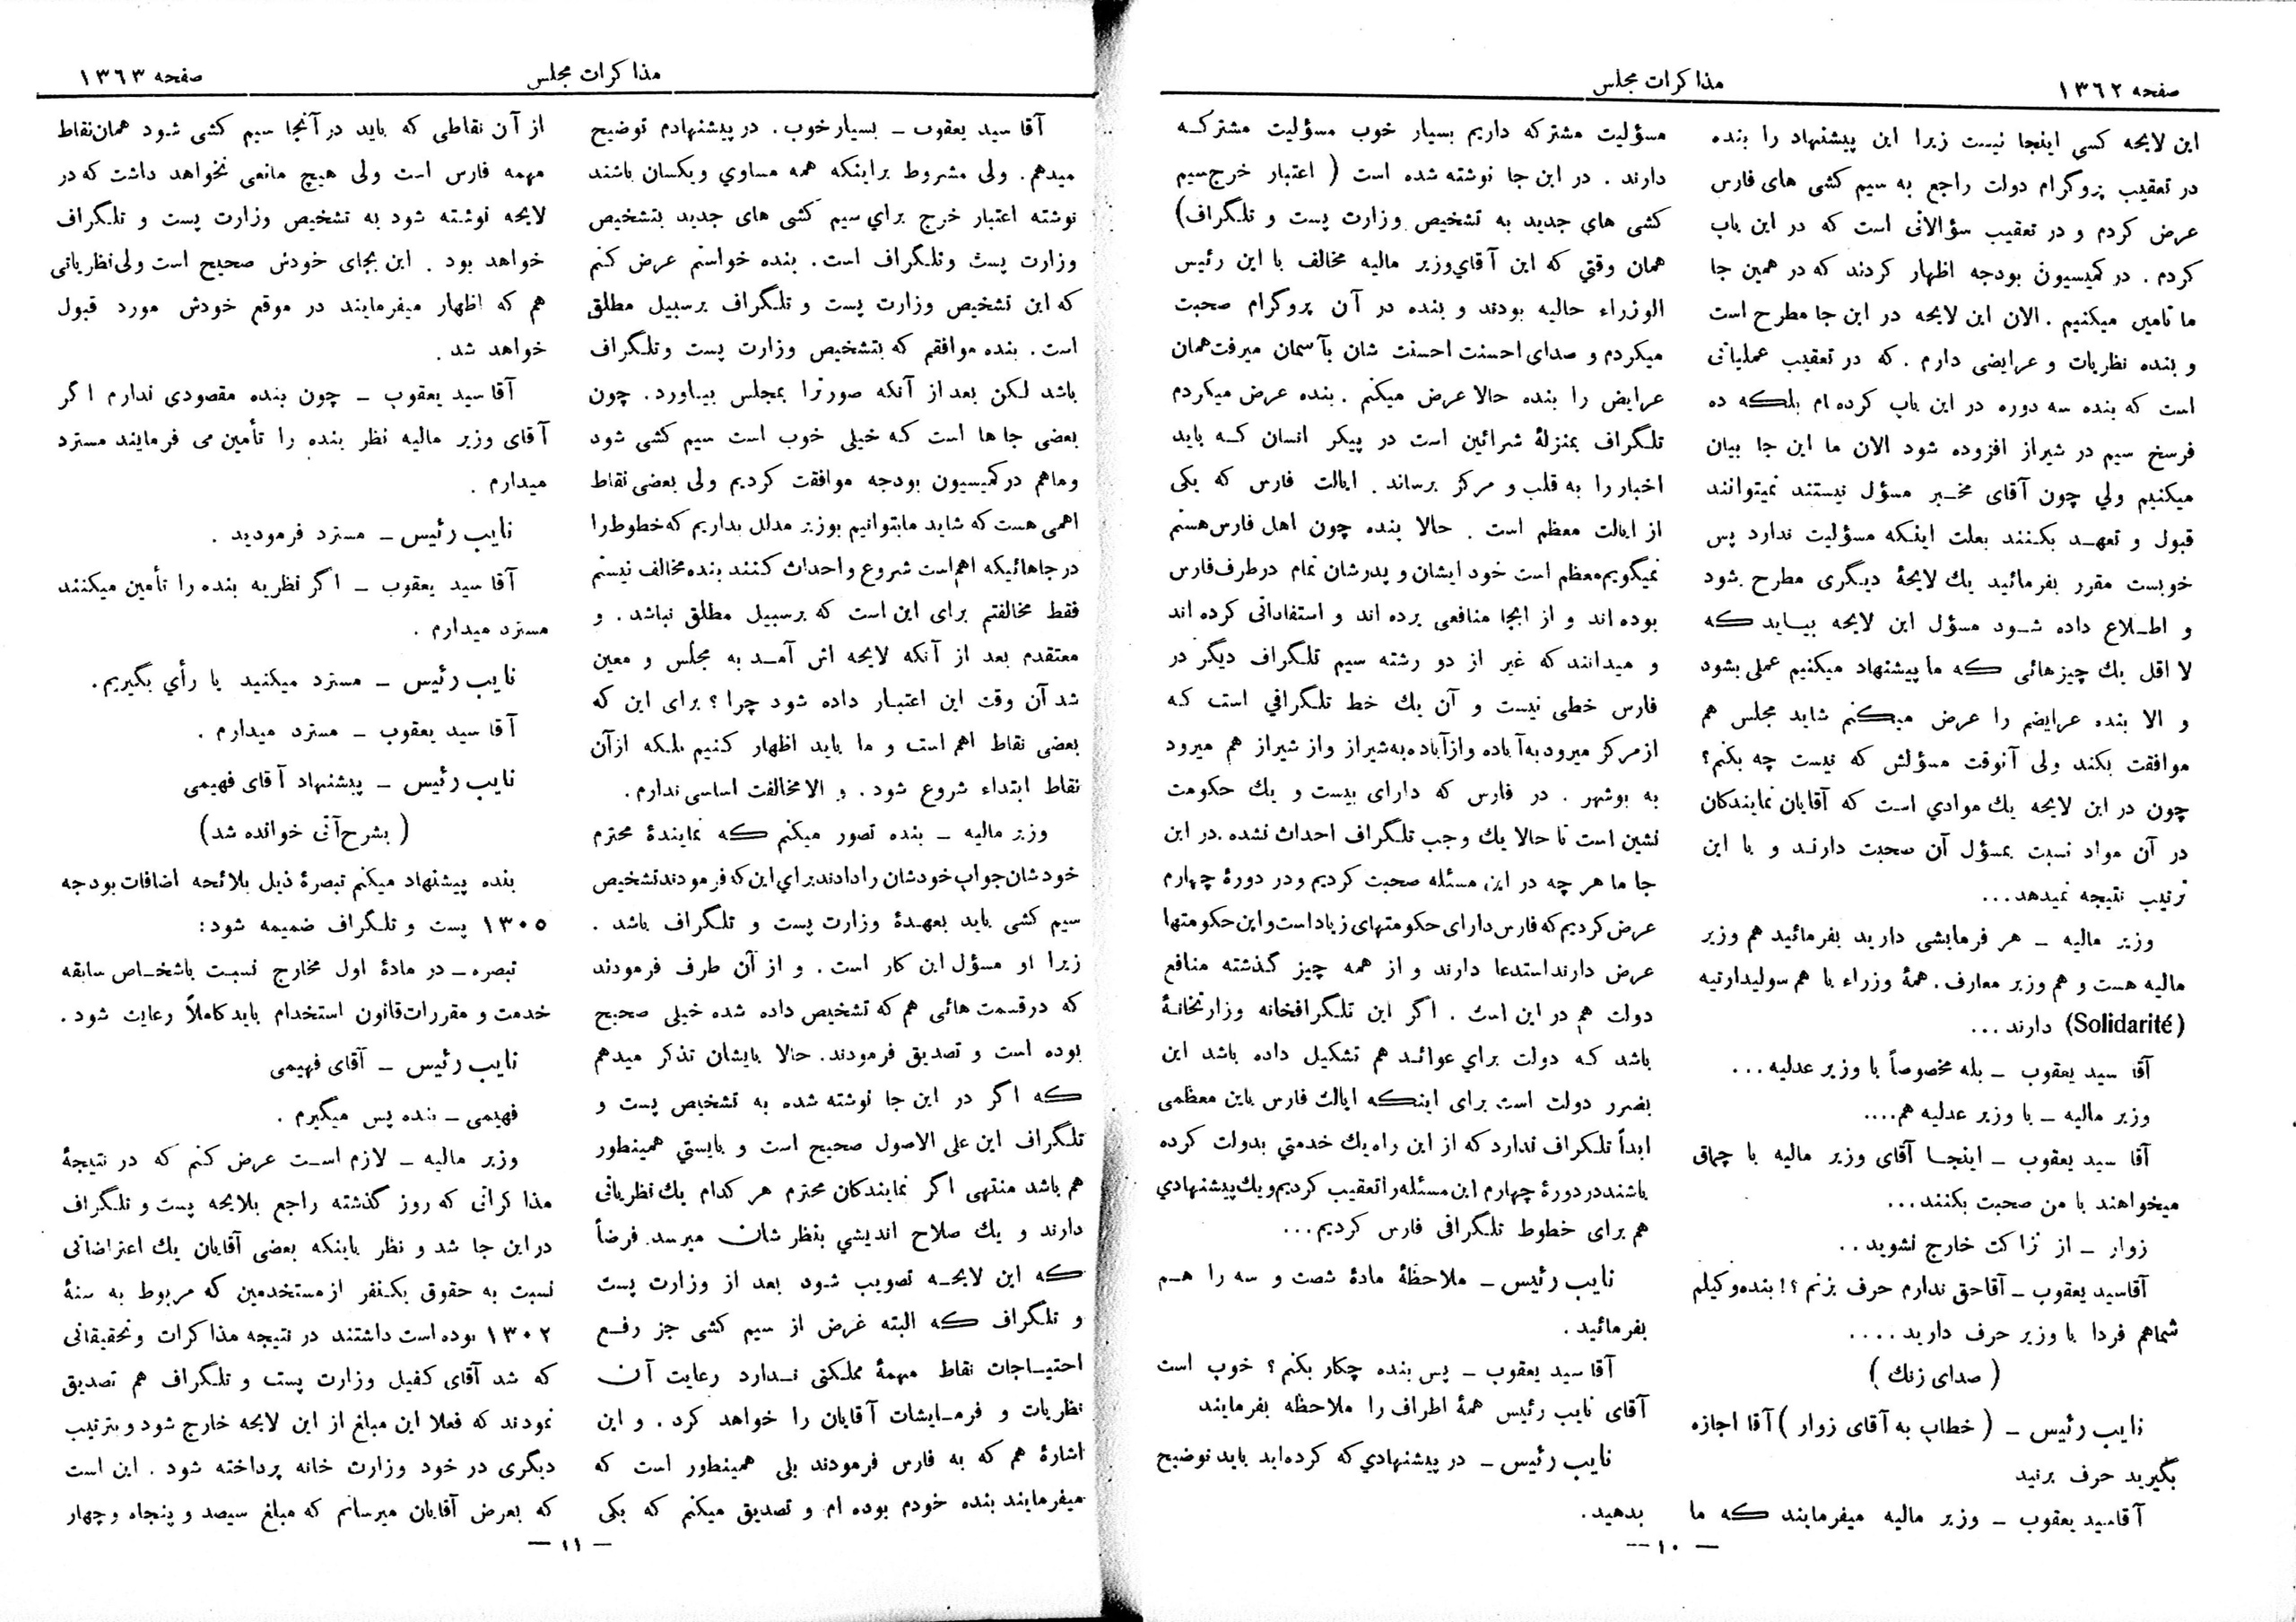 صفحه ۱۳۶۲
مذاکرات مجلس
این لایحه کسی اینجا نیست زیرا این پیشنهاد را بنده
در تعقیب پروگرام دولت راجع به سیم کشی های فارس
عرض کردم و در تعقیب سؤالاتی است که در این باب
کردم . در کمیسیون بودجه اظهار کردند که در همین جا
ما تامین میکنیم . الان این لایحه در این جا مطرح است
و بنده نظریات و عرایضی دارم . که در تعقیب عملیاتی
است که بنده سه دوره در این باب کرده ام بلکه ده
فرسخ سیم در شیراز افزوده شود الان ما این جا بیان
میکنیم ولی چون آقای مخبر مسؤل نیستند نمیتوانند
قبول و تعهد بکنند بعلت اینکه مسؤلیت ندارد پس
خوبست مقرر بفرمائید یك لایحهٔ دیگری مطرح شود
و اطلاع داده شود مسؤل این لایحه بیاید که
لا اقل یك چیزهائی که ما پیشنهاد میکنیم عملی بشود
و الا بنده عرایضم را عرض میکنم شاید مجلس هم
موافقت بکند ولی آنوقت مسؤلش که نیست چه بکنم؟
چون در این لایحه یك موادی است که آقایان نمایندکان
در آن مواد نسبت بمسؤل آن صحبت دارند و با این
ترتیب نتیجه نمیدهد...
وزیر مالیه ــ هر فرمایشی دارید بفرمائید هم وزیر
مالیه هست و هم وزیر معارف . همهٔ وزراء با هم سولیدارتیه
(Solidarité) دارند ...
آقا سید یعقوب ــ بله مخصوصاً با وزیر عدلیه ...
وزیر مالیه ــ با وزیر عدلیه هم....
آقا سید یعقوب ــ اینجا آقای وزیر مالیه با چماق
میخواهند با من صحبت بکنند...
زوار ــ از نزاکت خارج نشوید ..
آقاسید یعقوب ــ آقاحق ندارم حرف بزنم ؟! بنده وکیلم
شماهم فردا با وزیر حرف دارید ....
( صدای زنك )
نایب رئیس ــ ( خطاب به آقای زوار ) آقا اجازه
بگیرید حرف بزنید
آقاسید یعقوب ــ وزیر مالیه میفرمایند که ما
مسؤلیت مشترکه داریم بسیار خوب مسؤلیت مشترکه
دارند . در این جا نوشته شده است ( اعتبار خرج سیم
کشی های جدید به تشخیص وزارت پست و تلگراف)
همان وقتي که این آقاي وزیر مالیه مخالف با این رئیس
الوزراء حالیه بودند و بنده در آن پروگرام صحبت
میکردم و صدای احسنت احسنت شان بآسمان میرفت همان
عرایض را بنده حالا عرض میکنم . بنده عرض میکردم
تلگراف بمنزلهٔ شرائین است در پیکر انسان که باید
اخبار را به قلب و مرکز برساند . ایالت فارس که یکی
از ایالت معظم است . حالا بنده چون اهل فارس هستم
نمیگویم معظم است خود ایشان و پدرشان تمام در طرف فارس
بوده اند و از ابجا منافعی برده اند و استفاداتی کرده اند
و میدانند که غیر از دو رشته سیم تلگراف دیگر در
فارس خطی نیست و آن یك خط تلگرافي است که
از مرکز میرود به آباده و از آباده به شیراز و از شیراز هم میرود
به بوشهر . در فارس که دارای بیست و یك حکومت
نشین است تا حالا یك وجب تلگراف احداث نشده . در این
جا ما هر چه در این مسئله صحبت کردیم و در دورهٔ چهارم
عرض کردیم که فارس دارای حکومتهای زیاد است و این حکومتها
عرض دارند استدعا دارند و از همه چیز گذشته منافع
دولت هم در این است . اگر این تلگرافخانه وزارتخانهٔ
باشد که دولت برای عوائد هم تشکیل داده باشد این
بضرر دولت است برای اینکه ایالت فارس باین معظمی
ابداً تلکراف ندارد که از این راه یك خدمتي بدولت کرده
باشند در دورهٔ چهارم این مسئله را تعقیب کردیم و یك پیشنهادي
هم برای خطوط تلگرافی فارس کردیم...
نایب رئیس ــ ملاحظهٔ مادهٔ شصت و سه را هم
بفرمائید .
آقا سید یعقوب ــ پس بنده چکار بکنم ؟ خوب است
آقای نایب رئیس همهٔ اطراف را ملاحظه بفرمایند
نایب رئیس ــ در پیشنهادي که کرده اید باید توضیح
بدهید .
— ۱۰ —
صفحه ۱۳۶۳
مذاکرات مجلس
آقا سید یعقوب ــ بسیار خوب . در پیشنهادم توضیح
میدهم . ولی مشروط براینکه همه مساوي ویکسان باشند
نوشته اعتبار خرج براي سیم کشی های جدید بتشخیص
وزارت پست وتلگراف است . بنده خواستم عرض کنم
که این تشخیص وزارت پست و تلگراف برسبیل مطلق
است . بنده موافقم که بتشخیص وزارت پست وتلگراف
باشد لکن بعد از آنکه صورترا بمجلس بیاورد . چون
بعضی جا ها است که خیلی خوب است سیم کشی شود
وماهم در کمیسیون بودجه موافقت کردیم ولی بعضی نقاط
اهمی هست که شاید مابتوانیم بوزیر مدلل بداریم که خطوط را
در جاهائیکه اهم است شروع و احداث کنند بنده مخالف نیستم
فقط مخالفتم برای این است که برسبیل مطلق نباشد . و
معتقدم بعد از آنکه لایحه اش آمد به مجلس و معین
شد آن وقت این اعتبار داده شود چرا ؟ برای این که
بعضی نقاط اهم است و ما باید اظهار کنیم بلکه ازآن
نقاط ابتداء شروع شود . و الا مخالفت اساسی ندارم .
وزیر مالیه ــ بنده تصور میکنم که نمایندهٔ محترم
خودشان جواب خودشان را دادند براي این که فرمودند تشخیص
سیم کشی باید بعهدهٔ وزارت پست و تلگراف باشد .
زیرا او مسؤل این کار است . و از آن طرف فرمودند
که در قسمت هائی هم که تشخیص داده شده خیلی صحیح
بوده است و تصدیق فرمودند. حالا بایشان تذکر میدهم
که اگر در این جا نوشته شده به تشخیص پست و
تلگراف این علی الاصول صحیح است و بایستي همینطور
هم باشد منتهی اگر نمایندکان محترم هر کدام یك نظریاتی
دارند و یك صلاح اندیشي بنظر شان میرسد. فرضاً
که این لایحه تصویب شود بعد از وزارت پست
و تلگراف که البته غرض از سیم کشی جز رفع
احتیاجات نقاط مهمهٔ مملکتی ندارد رعایت آن
نظریات و فرمایشات آقایان را خواهد کرد . و این
اشارهٔ هم که به فارس فرمودند بلی همینطور است که
میفرمایند بنده خودم بوده ام و تصدیق میکنم که یکی
از آن نقاطی که باید در آنجا سیم کشی شود همان نقاط
مهمه فارس است ولی هیچ مانعی نخواهد داشت که در
لایحه نوشته شود به تشخیص وزارت پست و تلگراف
خواهد بود . این بجای خودش صحیح است ولی نظریاتی
هم که اظهار میفرمایند در موقع خودش مورد قبول
خواهد شد .
آقا سید یعقوب ــ چون بنده مقصودی ندارم اگر
آقای وزیر مالیه نظر بنده را تأمین می فرمایند مسترد
میدارم .
نایب رئیس ــ مسترد فرمودید .
آقا سید یعقوب ــ اگر نظریه بنده را تأمین میکنند
مسترد میدارم .
نایب رئیس ــ مسترد میکنید یا رأي بگیریم .
آقا سید یعقوب ــ مسترد میدارم .
نایب رئیس ــ پیشنهاد آقای فهیمی
( بشرح آتی خوانده شد)
بنده پیشنهاد میکنم تبصرهٔ ذیل بلائحه اضافات بودجه
۱۳۰۵ پست و تلگراف ضمیمه شود:
تبصره ــ در مادهٔ اول مخارج نسبت باشخاص سابقه
خدمت و مقررات قانون استخدام باید کاملاً رعایت شود .
نایب رئیس ــ آقای فهیمی
فهیمی ــ بنده پس میگیرم .
وزیر مالیه ــ لازم است عرض کنم که در نتیجهٔ
مذاکراتی که روز گذشته راجع بلایحه پست و تلگراف
در این جا شد و نظر باینکه بعضی آقایان یك اعتراضاتی
نسبت به حقوق یکنفر از مستخدمین که مربوط به سنهٔ
۱۳۰۲ بوده است داشتند در نتیجه مذاکرات وتحقیقاتی
که شد آقای کفیل وزارت پست و تلگراف هم تصدیق
نمودند که فعلا این مبلغ از این لایحه خارج شود و بترتیب
دیگری در خود وزارت خانه پرداخته شود . این است
که بعرض آقایان میرسانم که مبلغ سیصد و پنجاه و چهار
— ۱۱ —